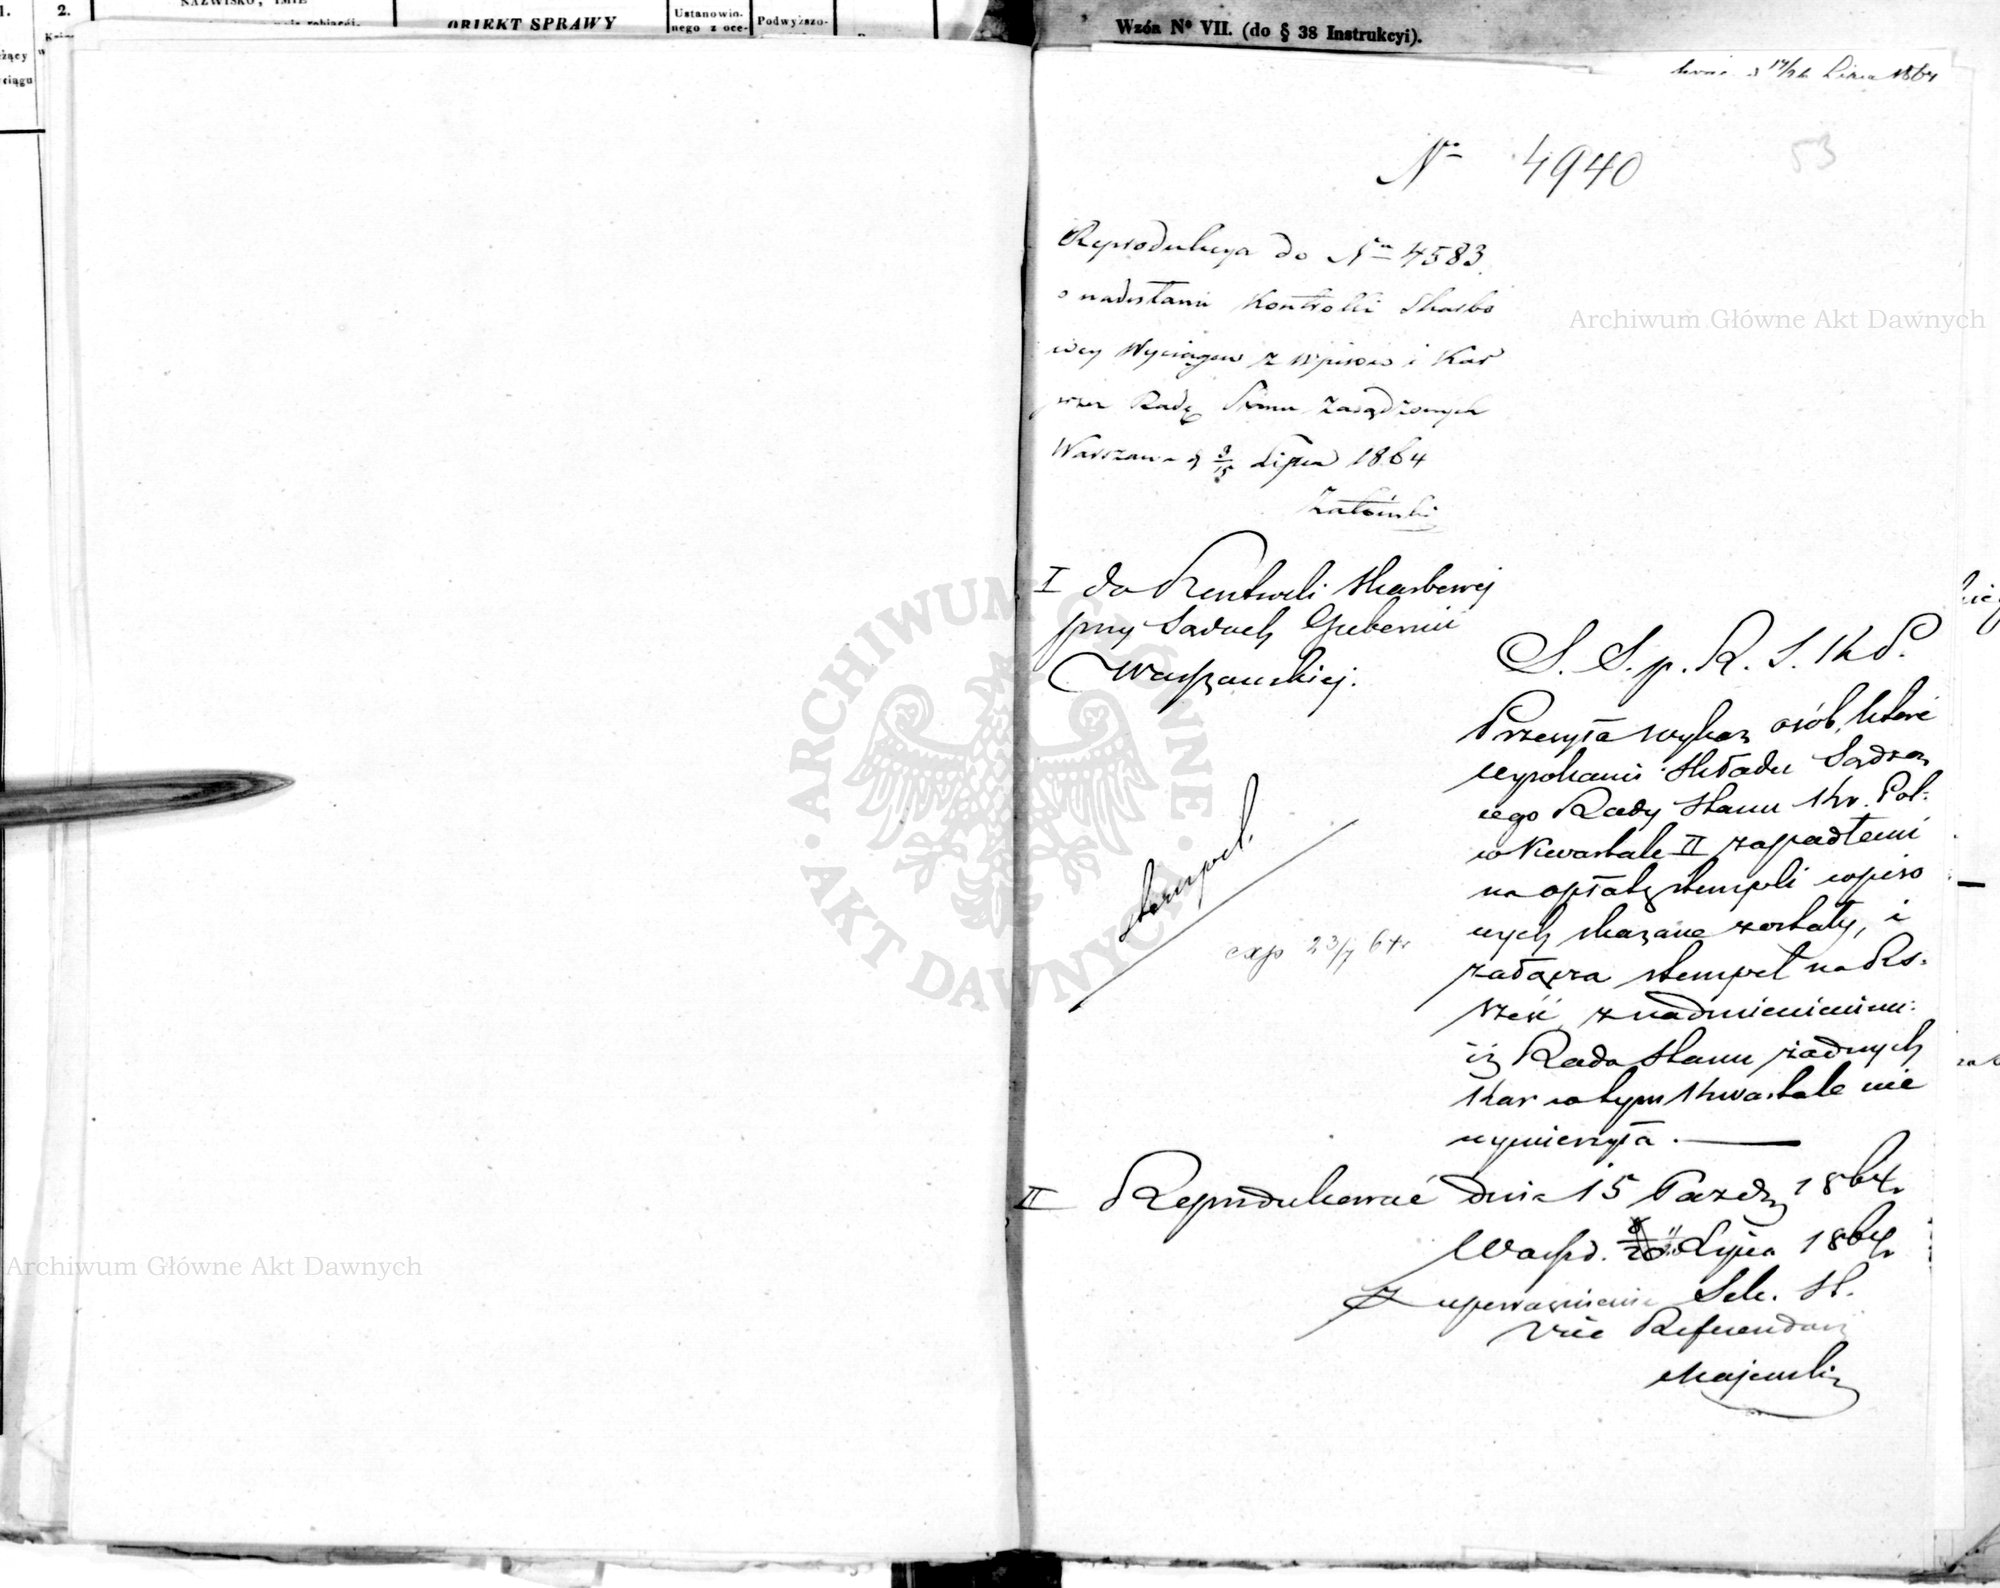 1.
2.
NAZWISKO, IMIĘ
OBIEKT SPRAWY
Ustanowio-
nego z oce-
Podwyższo-
Wzór Nº VII. (do § 38 Instrukcyi).
17/26 Lipca 1864
Nº 4940
53
Reprodukcya do Nru 4583
o nadesłaniu Kontrolli Skarbo
wey Wyciągów z wpisów i Kar
przez Radę Stanu zasądzonych
Warszawa d 3/15 Lipca 1864
I do Kontroli Skarbowej
przy Sądach Gubernii
Warszawskiej.
S. S. p. R. S. K P.
Przesyła wykaz osób, które
wyrokami Składu Sądzą
cego Rady Stanu Kr. Pol:
w Kwartale II zapadłemi
na opłatę stempli wpiso
wych skazane zostały, i
załącza stempel na Rs.
sześć z nadmienieniem:
iż Rada Stanu żadnych
Kar w tym Kwartale nie
wymierzyła.
stempel.
exp 23/7 64r
II Reprodukować dnia 15 Paźdz 1864r
Warsz d. Lipca 1864r
Z upoważnienia Sek. St.
Vice Referendarz
Majewski
Archiwum Główne Akt Dawnych
Archiwum Główne Akt Dawnych
ARCHIWUM GŁÓWNE AKT DAWNYCH